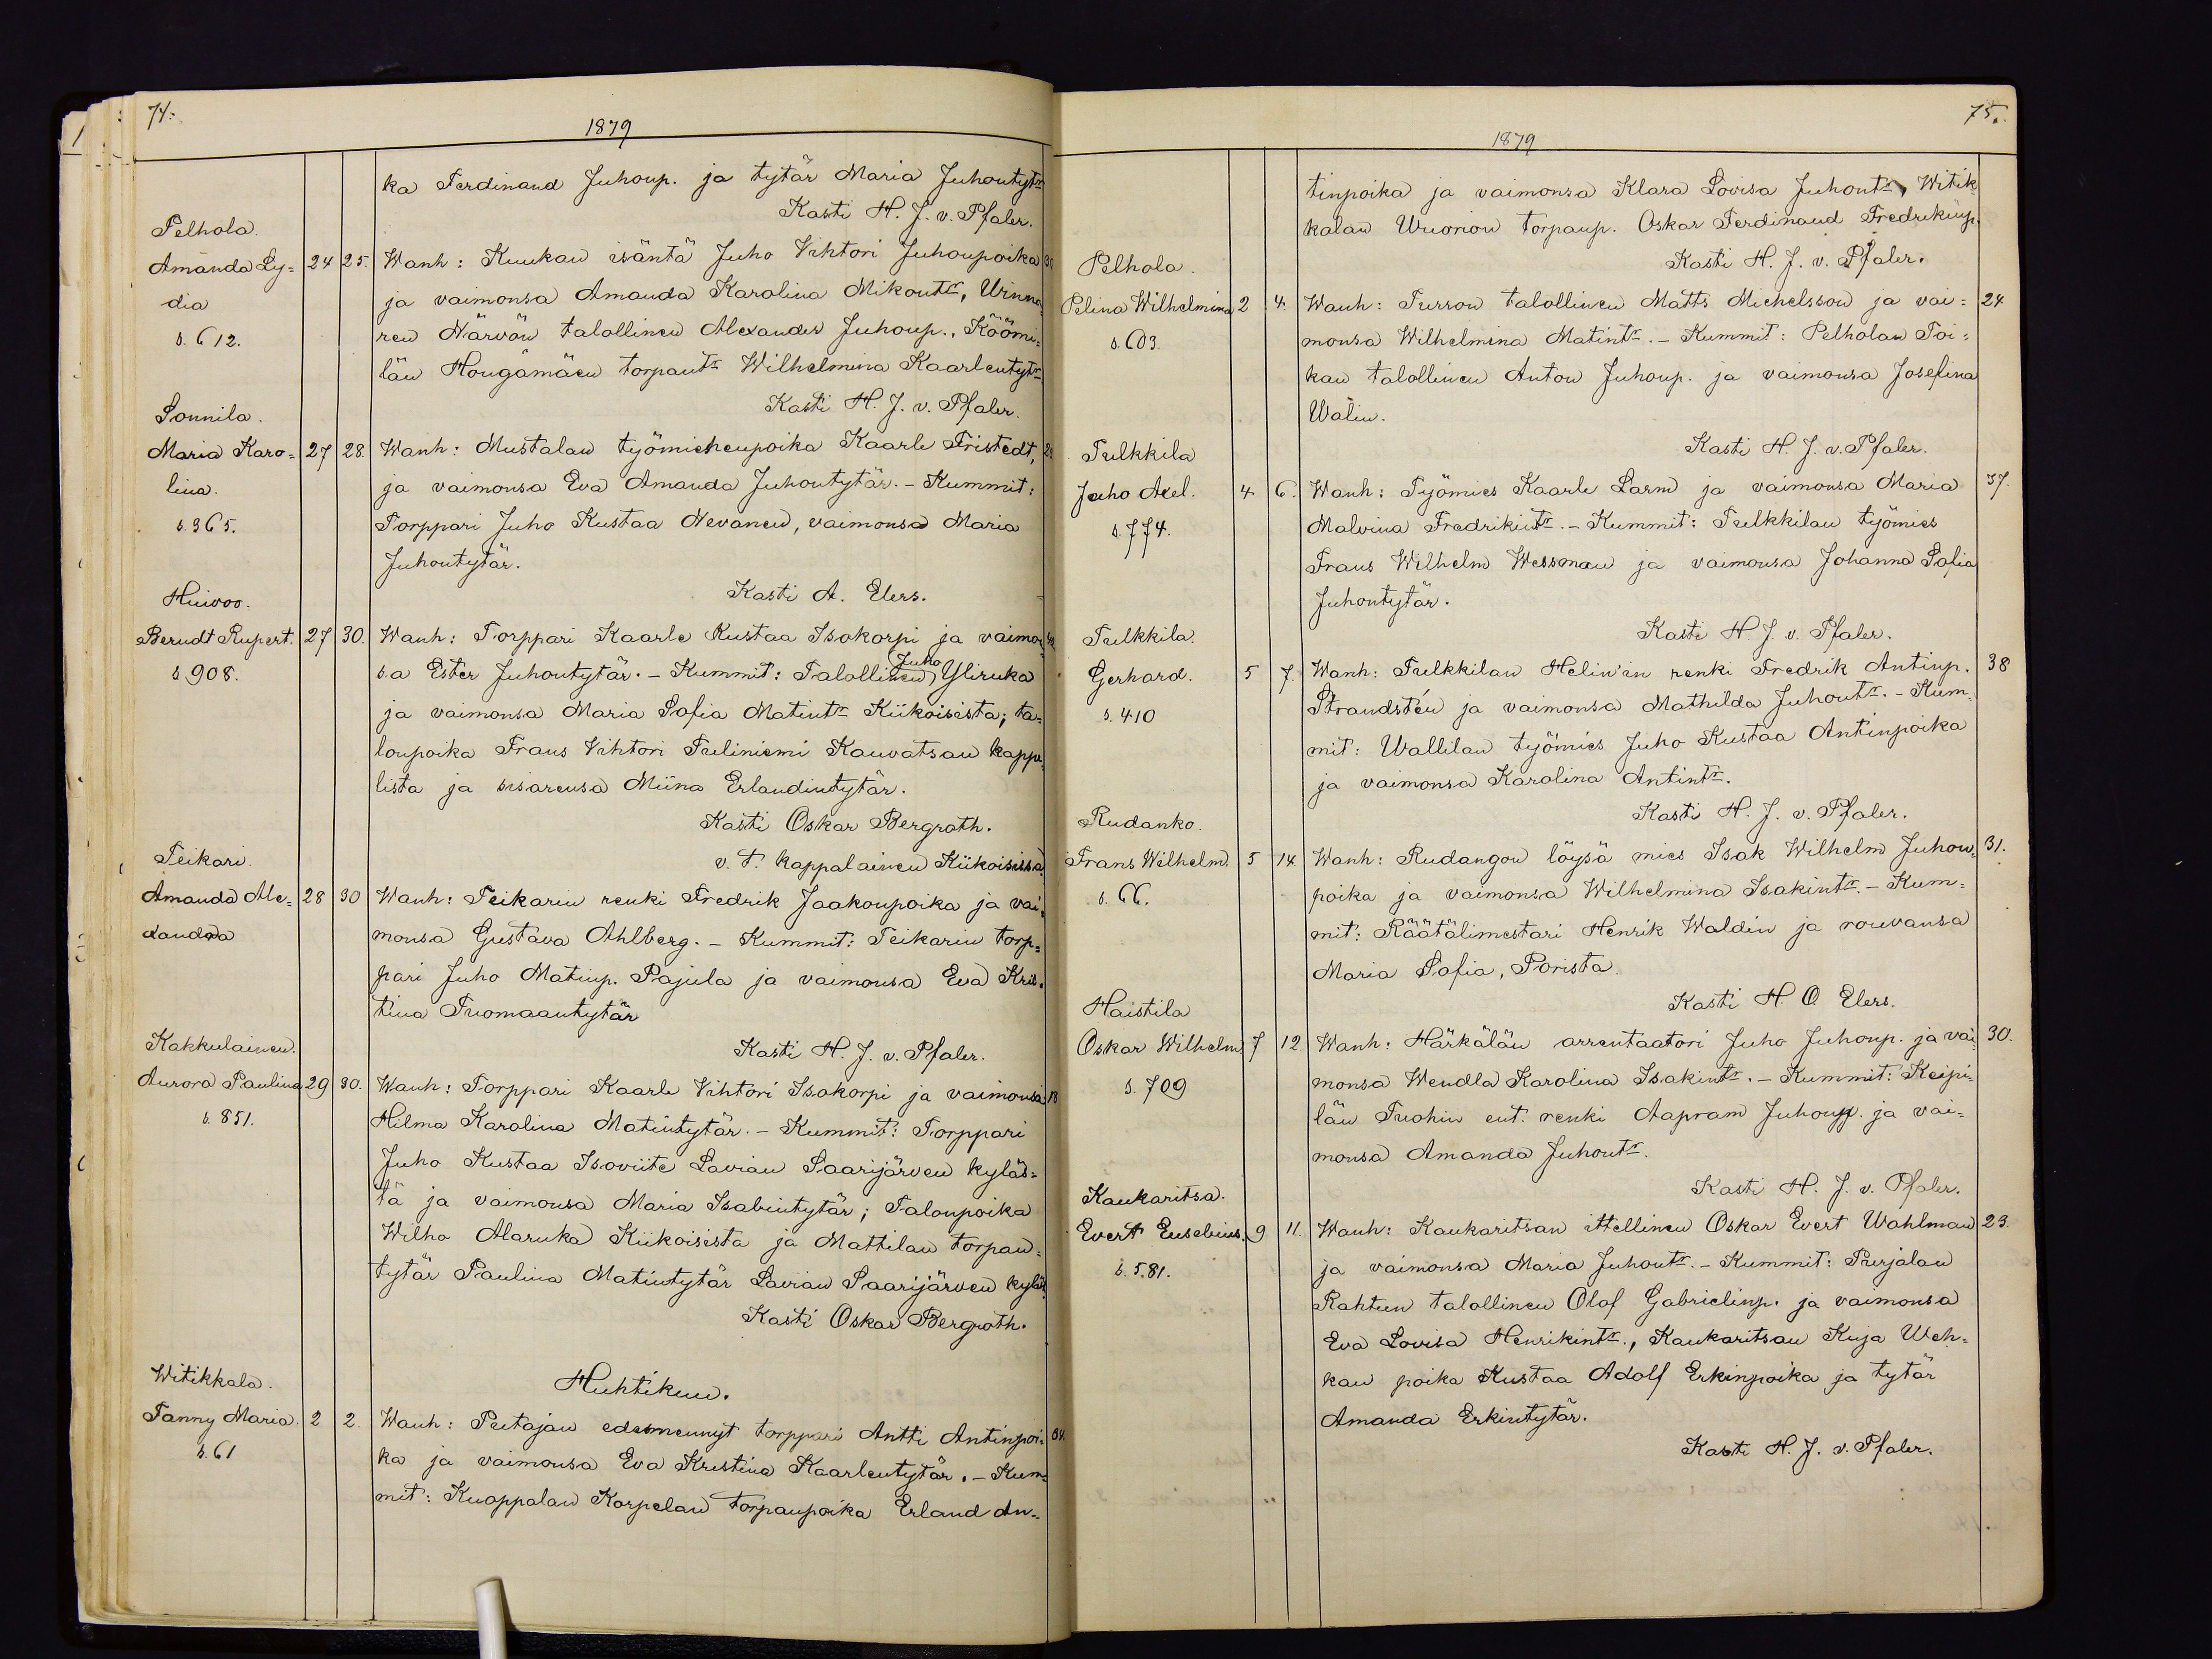 74.
1879
ka Ferdinand Juhonp. ja tytär Maria Juhontytr
Kasti H. J. v. Pfaler.
Pelhola.
Amanda Ly= 24 25. Wanh: Kuukan isäntä Juho Vihtori Juhonpoika
dia ja vaimonsa Amanda Karolina Mikontr, Urinna
s. 612. ren Närvän talollinen Alexander Juhonp., Köömi=
län Hongamäen torpantr Wilhelmina Kaarlentytr
Kasti H. J. v. Pfaler.
Sonnila.
Maria Karo= 27 28. Wanh: Mustalan työmiehenpoika Kaarle Fristedt,
lina. ja vaimonsa Eva Amanda Juhontytär. - Kummit:
s. 365. Torppari Juho Kustaa Nevanen, vaimonsa Maria
Juhontytär.
Kasti A. Elers.
Huivoo.
Berndt Rupert. 27 30. Wanh: Torppari Kaarle Kustaa Isokorpi ja vaimon
s 908. sa Ester Juhontytär. - Kummit: Talollinen Juho Yliruka
ja vaimonsa Maria Sofia Matintr Kiikoisista; ta=
lonpoika Frans Vihtori Tuliniemi Kauvatsan kappe
lista ja sisarensa Miina Erlandintytär.
Kasti Oskar Bergroth.
v. t. kappalainen Kiikoisissa
Teikari.
Amanda Ale= 28 30 Wanh: Teikarin renki Fredrik Jaakonpoika ja vai=
xandra monsa Gustava Ahlberg. - Kummit: Teikarin torp=
pari Juho Matinp. Pajula ja vaimonsa Eva Kris.
tina Tuomaantytär
Kasti H. J. v. Pfaler.
Kakkulainen.
Aurora Paulina 29 30. Wanh: Torppari Kaarle Vihtori Isokorpi ja vaimonsa 18
s. 851. Hilma Karolina Matintytär. - Kummit: Torppari
Juho Kustaa Isoviite Lavian Saarijärven kyläs=
tä ja vaimonsa Maria Isabintytär; Talonpoika
Wilho Alaruka Kiikoisista ja Mattilan torpan=
tytär Paulina Matintytär Lavian Saarijärven kyläs
Kasti Oskar Bergroth.
Huhtikuu.
Witikkala.
Fanny Maria. 2 2. Wanh: Peetajan edesmennyt torppari Antti Antinpoi= 34.
s. 61 ka ja vaimonsa Eva Kristina Kaarlentytär. - Kum=
mit: Kuoppalan Korpelan torpanpoika Erland An=
75.
1879
tinpoika ja vaimonsa Klara Lovisa Juhontr, Witik
kalan Wuorion torpanp. Oskar Ferdinand Fredrikinp.
Kasti H. J. v. Pfaler.
Pelhola.
Pelina Wilhelmina 2 4. Wanh: Turson talollinen Matts Michelsson ja vai= 24
s. 603. monsa Wilhelmina Matintr. - Kummit: Pelholan Toi=
kan talollinen Anton Juhonp. ja vaimonsa Josefina
Wälin.
Kasti H. J. v. Pfaler.
Tulkkila
Juho Axel. 4. 6. Wanh: Työmies Kaarle Larm ja vaimonsa Maria 37.
s. 774. Malvina Fredrikintr. - Kummit: Tulkkilan työmies
Frans Wilhelm Wessman ja vaimonsa Johanna Sofia
Juhontytär.
Kasti H. J. v. Pfaler.
Tulkkila.
Gerhard. 5 7. Wanh: Tulkkilan Helin'in renki Fredrik Antinp. 38
s. 410 Strandstén ja vaimonsa Mathilda Juhontr. - Kum
mit: Wallilan työmies Juho Kustaa Antinpoika
ja vaimonsa Karolina Antintr.
Kasti H. J. v. Pfaler.
Rudanko.
Frans Wilhelm. 5 14. Wanh: Rudangon löysä mies Isak Wilhelm Juhon= 31.
s. 66. poika ja vaimonsa Wilhelmina Isakintr. - Kum=
mit: Räätälimestari Henrik Waldin ja rouvansa
Maria Sofia, Porista.
Kasti H. O. Elers.
Haistila
Oskar Wilhelm 7 12. Wanh: Härkälän arrentaatori Juho Juhonp. ja vai 30.
s. 709 monsa Wendla Karolina Isakintr. - Kummit: Keipi=
län Tuohin ent. renki Aapram Juhonp. ja vai=
monsa Amanda Juhontr.
Kasti H. J. v. Pfaler.
Kaukaritsa.
Evert Eusebius. 9 11. Wanh: Kaukaritsan ittellinen Oskar Evert Wahlman 23.
s. 581. ja vaimonsa Maria Juhontr. - Kummit: Purjalan
Rahtun talollinen Olof Gabrielinp. ja vaimonsa
Eva Lovisa Henrikintr., Kaukaritsan Kuja Weh=
kan poika Kustaa Adolf Erkinpoika ja tytär
Amanda Erkintytär.
Kasti H. J. v. Pfaler.